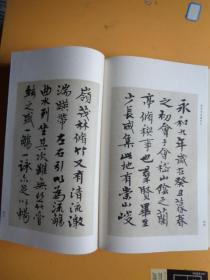 永和九年歲在癸丑暮春
之初會于會稽山陰之蘭
亭脩禊事也羣賢畢至
少長咸集此地有崇山峻
嶺茂林脩竹又有清流激
湍暎帶左右引以為流觴
曲水列坐其次雖無絲竹管
絃之盛一觴一詠亦足以暢